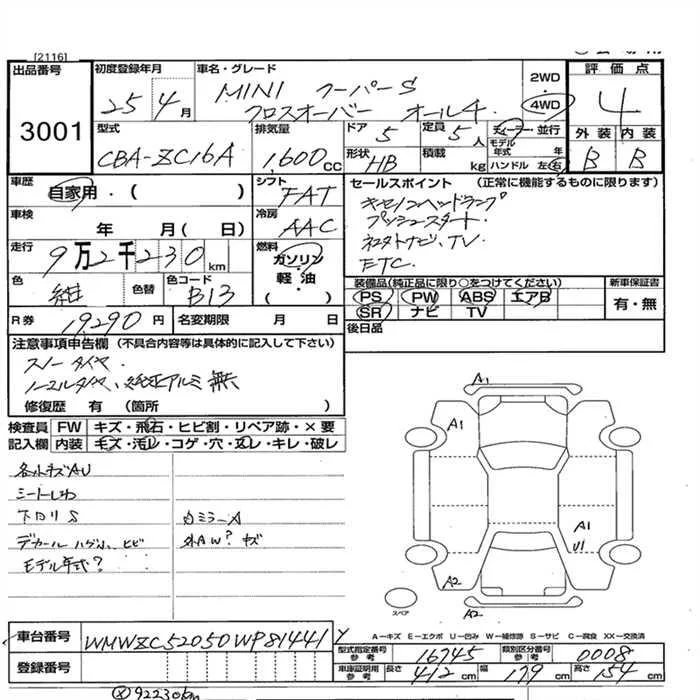 [2116]
出品番号
3001
初度登録年月
25年4月
車名・グレード
MINI クーパーS
クロスオーバー オール4
2WD
4WD
評価点
4
外装 内装
B B
型式
CBA-ZC16A
排気量
1,600cc
ドア
5
定員
5人
ディーラー・並行
モデル年式 年
ハンドル 左・右
形状
HB
積載
kg
車歴
自家用・( )
シフト
FAT
車検
年 月( 日)
冷房
AAC
走行
9万2千230km
燃料
ガソリン・
軽・油
( )
色
紺
色替
色コード
B13
R券
19,290円
名変期限 月 日
セールスポイント (正常に機能するものに限ります)
キセノンヘッドランプ
プッシュスタート
ETC.
装備品(純正品に限り○をつけてください)
PS PW ABS エアB
SR ナビ TV
新車保証書
有・無
後日品
注意事項申告欄(不具合内容等は具体的に記入して下さい)
スノータイヤ.
ノーマルタイヤ、純正アルミ無
修復歴 有(箇所 )
検査員 FW キズ・飛石・ヒビ割・リペア跡・×要
記入欄 内装 キズ・汚レ・コゲ・穴・スレ・キレ・破レ
各小キズAU
シートしわ
下回りS
デカール ハゲ小、ヒビ
モデル年式?
白ミラーA
外AW? キズ
A1
A1
A1
U1
A2
A2
スペア
A−キズ E−エクボ U−凹み W−補修跡 S−サビ C−腐食 XX−交換済
車台番号
WMWZC52050WP81441
登録番号
型式指定番号参考
16745
類別区分番号参考
0008
車庫証明用参考
長さ 412cm
幅 179cm
高さ 154cm
92230km